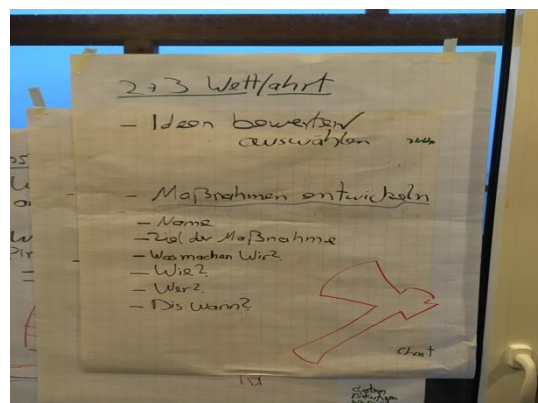 2+3 Wettfahrt
- Ideen bewerten/
auswählen
- Maßnahmen entwickeln
- Name
- Ziel der Maßnahme
- Was machen Wir?
- Wie?
- Wer?
- Bis wann?
Chart